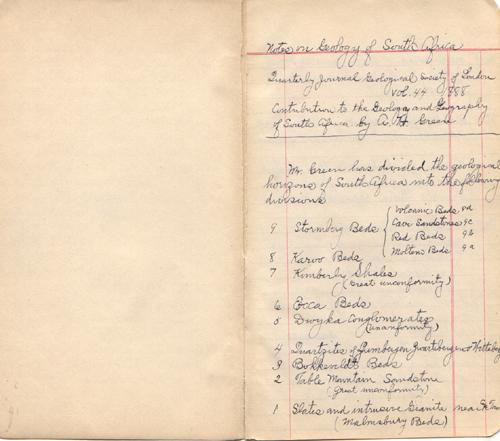 Notes on Geology of South Africa
Quarterly Journal Geological Society of London
vol. 44 1888
Contribution to the Geology and Geography
of South Africa by A. H. Green
Mr. Green has divided the geological
horizons of South Africa into the following
divisions
9 Stormberg Beds { Volcanic Beds 9d
Cave Sandstones 9c
Red Beds 9b
Molteno Beds 9a
8 Karoo Beds
7 Kimberly Shales
(Great unconformity)
6 Ecca Beds
5 Dwyka Conglomerates
(unconformity)
4 Quartzites of Zwartebergen or Witteberg
3 Bokkeveldt Beds
2 Table Mountain Sandstone
(Great unconformity)
1 Slates and intrusive Granite near
(Malmsbury Beds)